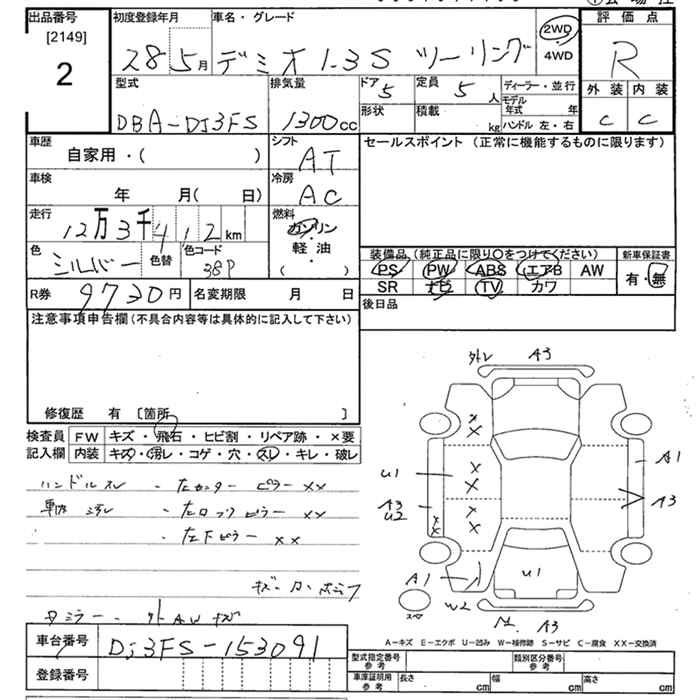 出品番号 初度登録年月 車名・グレード 評価点
[2149] 28 5月 デミオ 1.3S ツーリング 2WD R
2 ・4WD
型式 排気量 ドア 5 定員 5人 ディーラー・並行 外装 内装
DBA-DJ3FS 1300cc 形状 積載 kg モデル年式 年 C C
ハンドル 左・右
車歴 シフト セールスポイント (正常に機能するものに限ります)
自家用・( ) AT
車検 冷房
年 月( 日) AC
走行 燃料
12万3千412km ガソリン
色 色替 色コード 軽・油
シルバー 38P ( )
装備品(純正品に限り○をつけてください) 新車保証書
PS PW ABS エアB AW 有・無
SR ナビ TV カワ
R券 9730円 名変期限 月 日 後日品
注意事項申告欄(不具合内容等は具体的に記入して下さい)
修復歴 有 [箇所 ]
検査員 FW キズ・飛石・ヒビ割・リペア跡・×要
記入欄 内装 キズ・汚レ・コゲ・穴・スレ・キレ・破レ
ハンドルスレ ・左センターピラー ××
車内汚レ ・左フロントピラー ××
・左下ピラー ××
外レ A3
U1 A1
A3 A3
U2
A1 U1
スペア W2 A3
A-キズ E-エクボ U-凹み W-補修跡 S-サビ C-腐食 XX-交換済
車台番号 DJ3FS-153091
登録番号
型式指定番号 参考 類別区分番号 参考
車庫証明用 参考 長さ cm 幅 cm 高さ cm